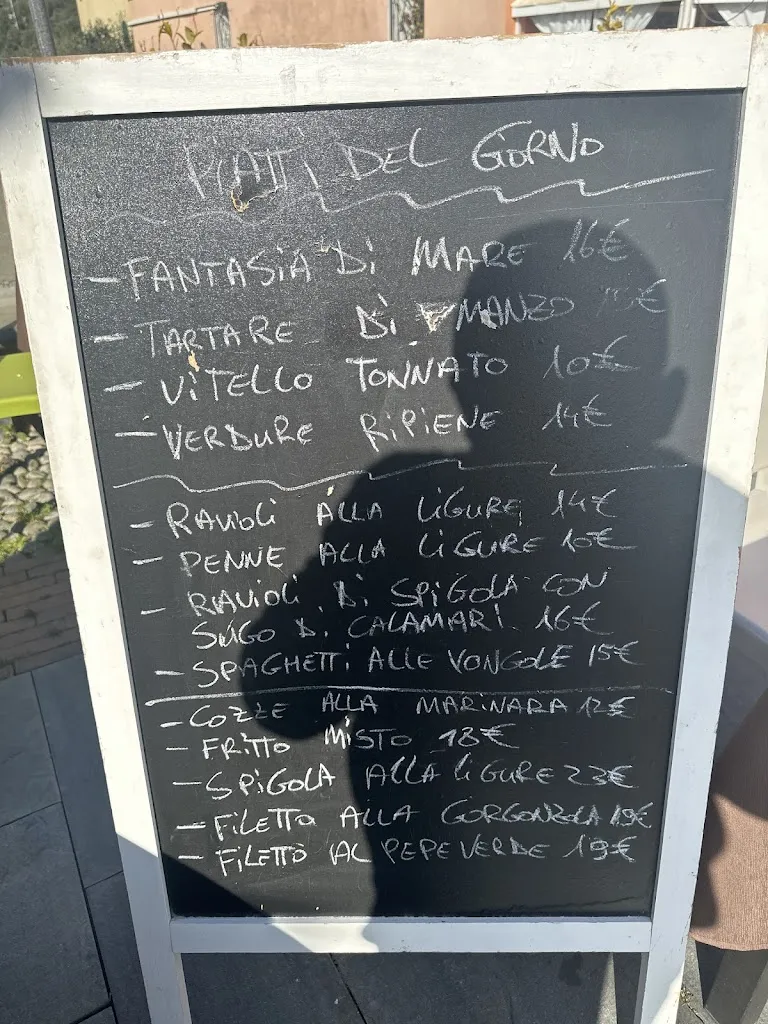 PIATTI DEL GIORNO
- FANTASIA DI MARE 16€
- TARTARE DI MANZO
- VITELLO TONNATO 10€
- VERDURE RIPIENE 14€
- RAVIOLI ALLA LIGURE 14€
- PENNE ALLA LIGURE 10€
- RAVIOLI DI SPIGOLA CON
SUGO DI CALAMARI 16€
- SPAGHETTI ALLE VONGOLE 15€
- COZZE ALLA MARINARA 12€
- FRITTO MISTO 18€
- SPIGOLA ALLA LIGURE 23€
- FILETTO ALLA GORGONZOLA 19€
- FILETTO AL PEPE VERDE 19€